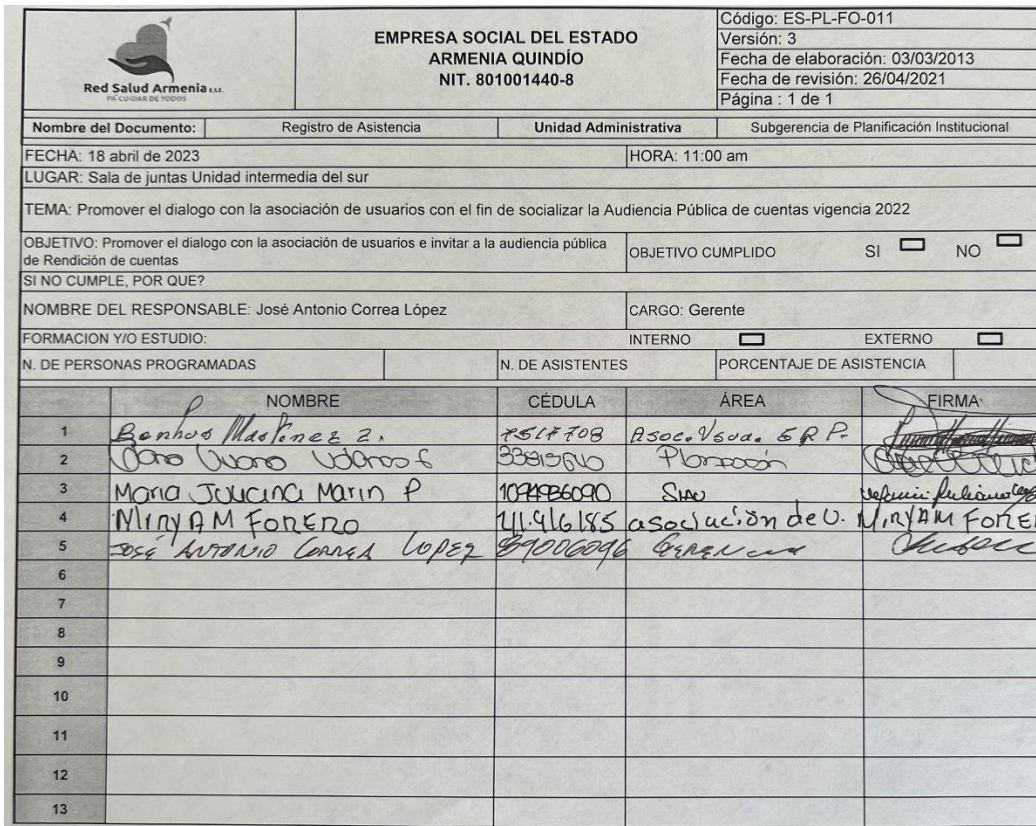 Red Salud Armenia E.S.E.
PA' CUIDAR DE TODOS
EMPRESA SOCIAL DEL ESTADO
ARMENIA QUINDÍO
NIT. 801001440-8
Código: ES-PL-FO-011
Versión: 3
Fecha de elaboración: 03/03/2013
Fecha de revisión: 26/04/2021
Página : 1 de 1
Nombre del Documento: Registro de Asistencia Unidad Administrativa Subgerencia de Planificación Institucional
FECHA: 18 abril de 2023 HORA: 11:00 am
LUGAR: Sala de juntas Unidad intermedia del sur
TEMA: Promover el dialogo con la asociación de usuarios con el fin de socializar la Audiencia Pública de cuentas vigencia 2022
OBJETIVO: Promover el dialogo con la asociación de usuarios e invitar a la audiencia pública
de Rendición de cuentas
OBJETIVO CUMPLIDO SI NO
SI NO CUMPLE, POR QUE?
NOMBRE DEL RESPONSABLE: José Antonio Correa López CARGO: Gerente
FORMACION Y/O ESTUDIO: INTERNO EXTERNO
N. DE PERSONAS PROGRAMADAS N. DE ASISTENTES PORCENTAJE DE ASISTENCIA
NOMBRE CÉDULA ÁREA FIRMA
1 7517708
2
3 Maria Juliana Marin P 1094936090 SIAU
4 MIRYAM FORERO 41.416185 asociación de U. MIRYAM FORE
5 JOSÉ ANTONIO CORREA LOPEZ 89006096 GERENCIA
6
7
8
9
10
11
12
13